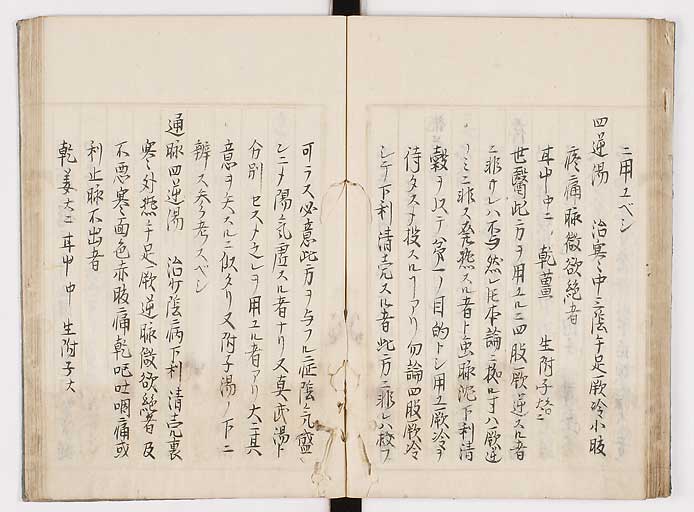 ニ用ユベシ
四逆湯　治寒中三陰手足厥冷小腹
疼痛脉微欲絶者
甘艸中中二　乾薑　生附子大二
世醫此方ヲ用ユルニ四股厥逆スル者
ニ非サレハ不与然レ圧本論ニ拠ル丁ハ厥逆
ノミニ非ス発熱スル者ト虫脉沈下利清
穀ヲ以テ第一ノ目的トシ用ユ厥冷ヲ
待タスメ投スルコアリ勿論四股厥冷
シテ下利清壳スル者此方ニ非レハ救フ
可ラス必意此方ヲ与フルニ症陰気盛
シニメ陽気虚スル者ナリ又真武湯ト
分別セスメ之レヲ用ユル者アリ大ニ其
意ヲ失スルニ似タリ又附子湯ノ下ニ
辨ス参考スベシ
通脉四逆湯　治少陰病下利清壳裏
寒外熱手足厥逆脉微欲絶者及
不悪寒面色赤腹痛乾呕吐咽痛或
利止脉不出者
乾姜大二　甘艸中　生附子大